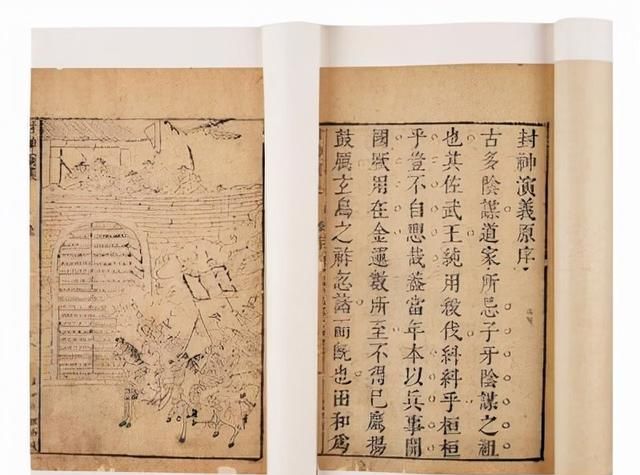 封神演義原序
古多陰謀道家所忌子牙陰謀之祖
也其佐武王純用殺伐糾糾乎桓桓
乎豈不自思哉蓋當年本以兵事開
國厥用在金運數所至不得已鷹揚
鼓厲玄鳥之忽既也田和爲
封神演義